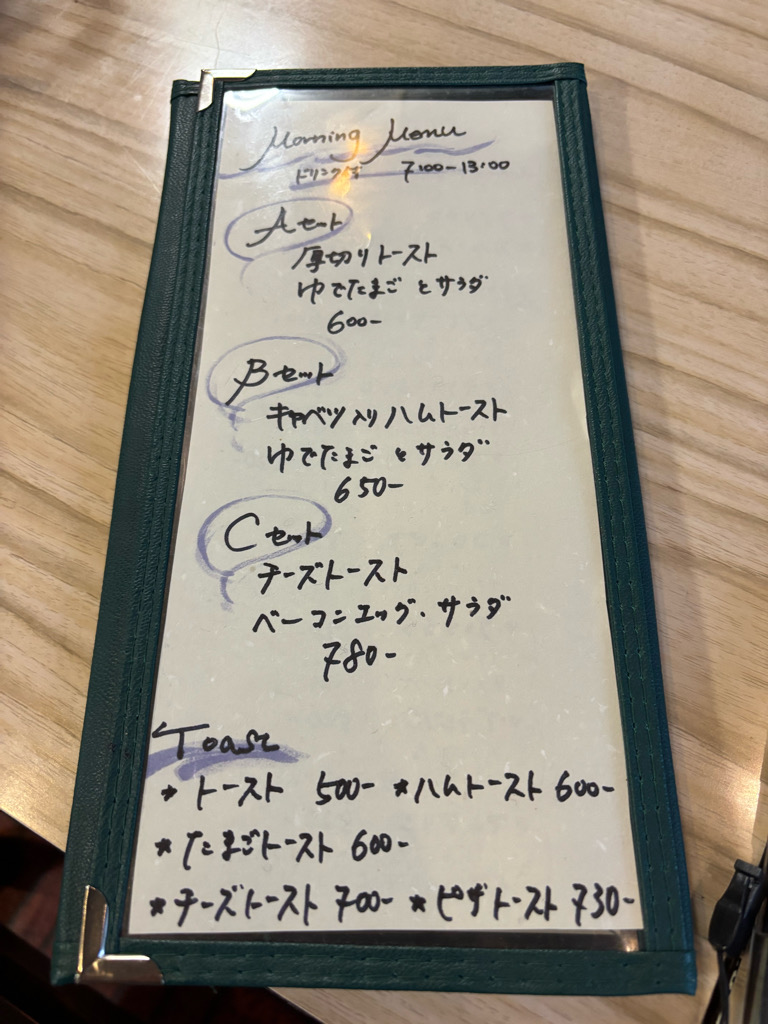 Morning Menu
ドリンク付 7:00-13:00
Aセット
厚切りトースト
ゆでたまご とサラダ
600-
Bセット
キャベツ入りハムトースト
ゆでたまご とサラダ
650-
Cセット
チーズトースト
ベーコンエッグ・サラダ
780-
Toast
* トースト 500- * ハムトースト 600-
* たまごトースト 600-
* チーズトースト 700- * ピザトースト 730-